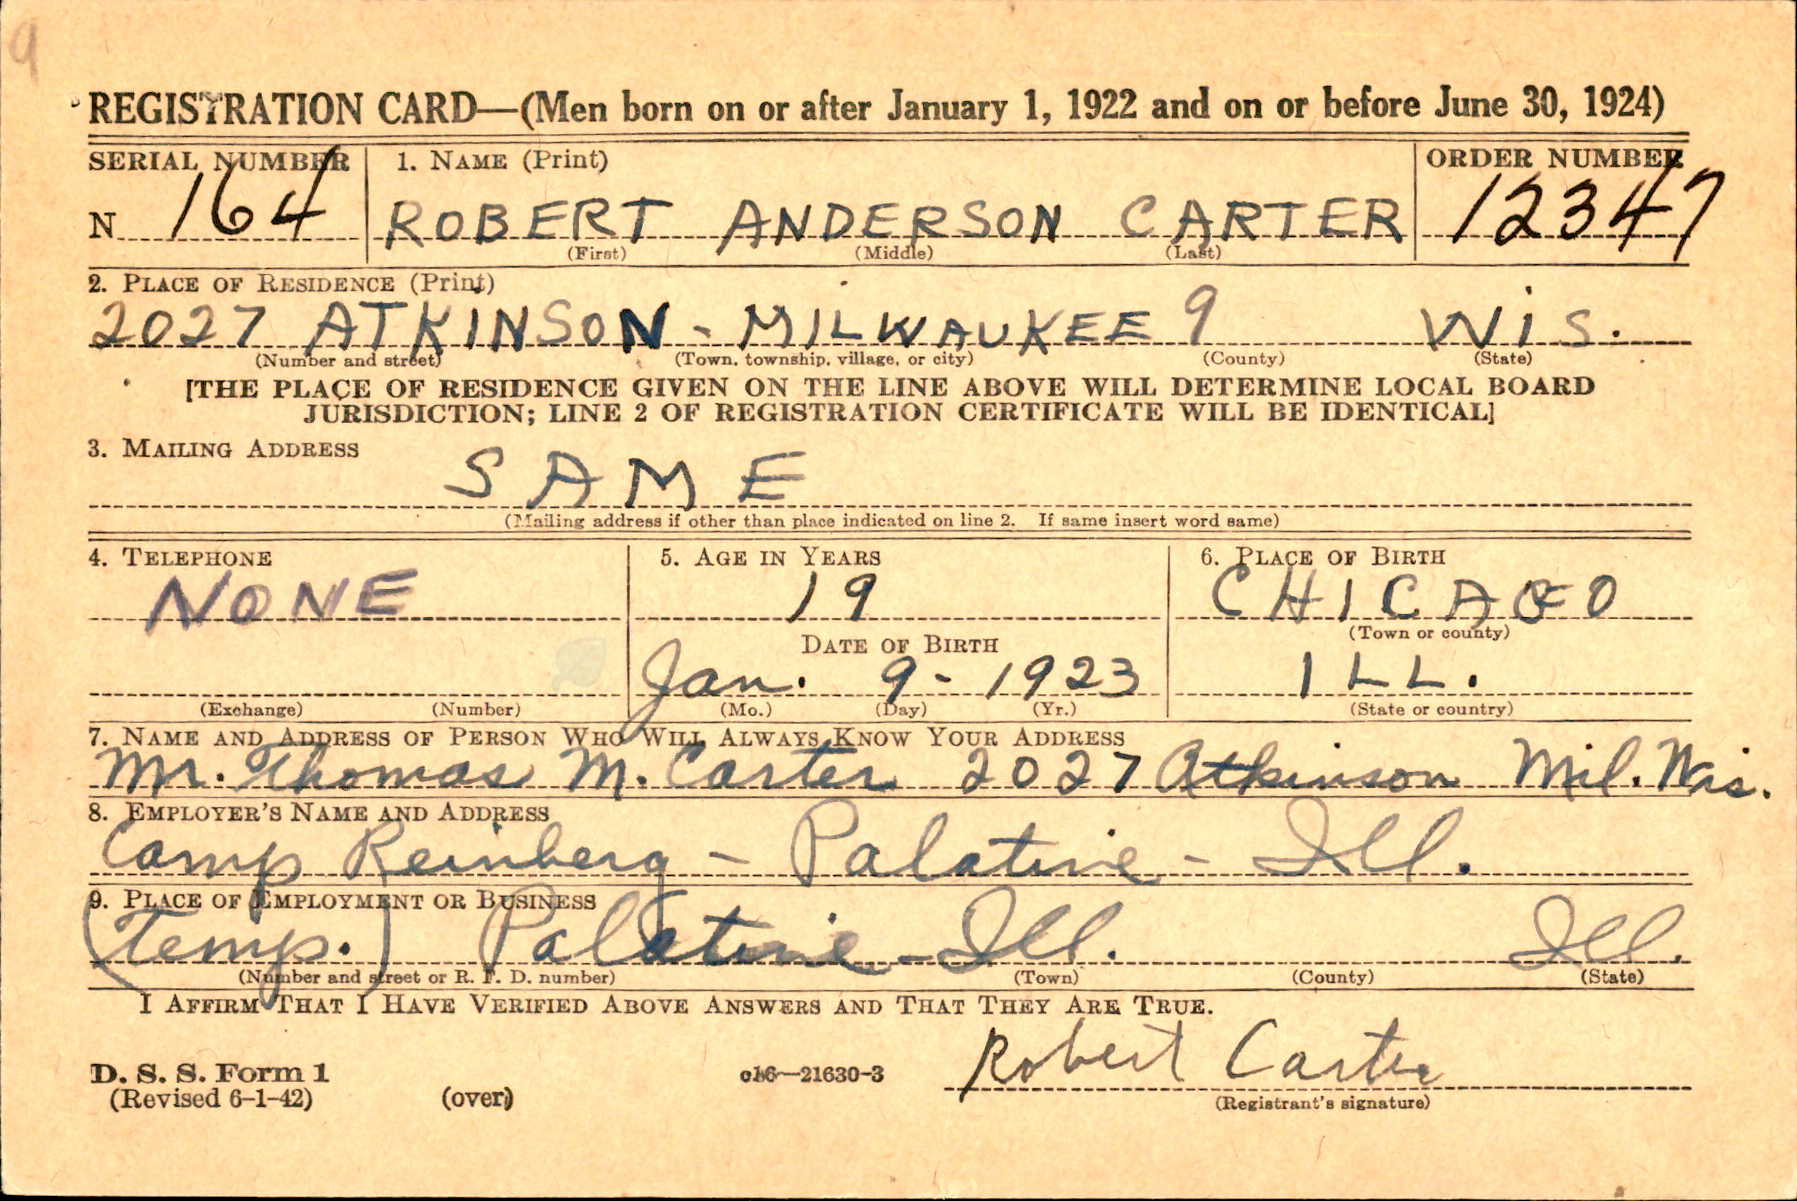 9
REGISTRATION CARD—(Men born on or after January 1, 1922 and on or before June 30, 1924)
SERIAL NUMBER 1. NAME (Print) ORDER NUMBER
N 164 ROBERT ANDERSON CARTER 12347
(First) (Middle) (Last)
2. PLACE OF RESIDENCE (Print)
2027 ATKINSON - MILWAUKEE 9 WIS.
(Number and street) (Town, township, village, or city) (County) (State)
[THE PLACE OF RESIDENCE GIVEN ON THE LINE ABOVE WILL DETERMINE LOCAL BOARD
JURISDICTION; LINE 2 OF REGISTRATION CERTIFICATE WILL BE IDENTICAL]
3. MAILING ADDRESS
SAME
(Mailing address if other than place indicated on line 2. If same insert word same)
4. TELEPHONE 5. AGE IN YEARS 6. PLACE OF BIRTH
NONE 19 CHICAGO
DATE OF BIRTH (Town or county)
Jan. 9 - 1923 ILL.
(Exchange) (Number) (Mo.) (Day) (Yr.) (State or country)
7. NAME AND ADDRESS OF PERSON WHO WILL ALWAYS KNOW YOUR ADDRESS
Mr. Thomas M. Carter 2027 Atkinson Mil. Wis.
8. EMPLOYER'S NAME AND ADDRESS
Camp Reinberg - Palatine - Ill.
9. PLACE OF EMPLOYMENT OR BUSINESS
(Temp.) Palatine - Ill. Ill.
(Number and street or R. F. D. number) (Town) (County) (State)
I AFFIRM THAT I HAVE VERIFIED ABOVE ANSWERS AND THAT THEY ARE TRUE.
Robert Carter
D. S. S. Form 1 c16—21630-3
(Revised 6-1-42) (over) (Registrant's signature)